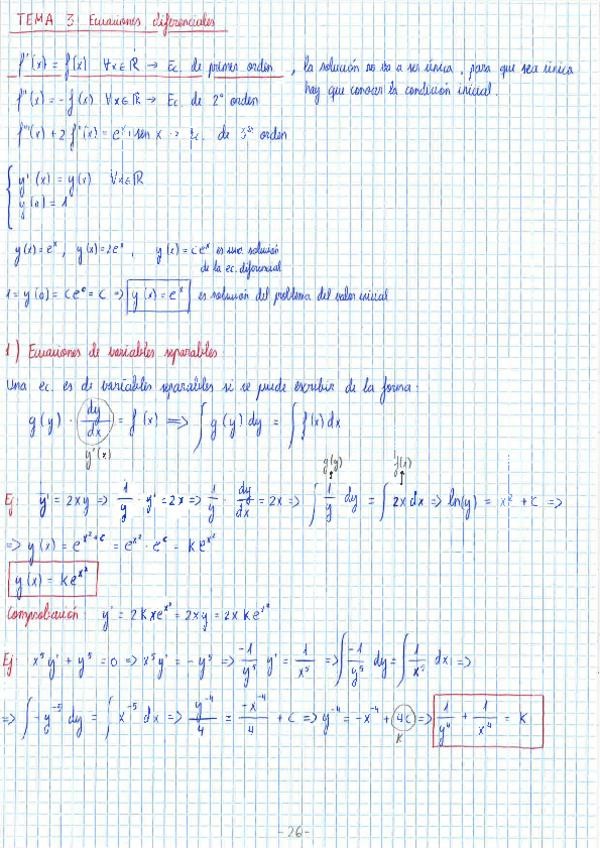 TEMA 3: Ecuaciones diferenciales
f'(x) = f(x) ∀x∈ℝ → Ec. de primer orden, la solución no va a ser única, para que sea única
hay que conocer la condición inicial.
f''(x) = -f(x) ∀x∈ℝ → Ec. de 2º orden
f'''(x) + 2f'(x) = eˣ + sen x → Ec. de 3er orden
y'(x) = y(x) ∀x∈ℝ
y(0) = 1
y(x) = eˣ, y(x) = 2eˣ, y(x) = Ceˣ es una solución
de la ec. diferencial
1 = y(0) = Ce⁰ = C ⇒ y(x) = eˣ es solución del problema del valor inicial
1) Ecuaciones de variables separables
Una ec. es de variables separables si se puede escribir de la forma:
g(y) · dy/dx = f(x) ⟹ ∫ g(y) dy = ∫ f(x) dx
y'(x)
g(y) f(x)
Ej: y' = 2xy ⇒ 1/y · y' = 2x ⇒ 1/y · dy/dx = 2x ⇒ ∫ 1/y dy = ∫ 2x dx ⇒ ln(y) = x² + C ⇒
⇒ y(x) = e^(x²+c) = e^(x²) · e^c = Ke^(x²)
y(x) = Ke^(x²)
Comprobación: y' = 2Kxe^(x²) = 2xy = 2xKe^(x²)
Ej: x⁵y' + y⁵ = 0 ⇒ x⁵y' = -y⁵ ⇒ -1/y⁵ y' = 1/x⁵ ⇒ ∫ -1/y⁵ dy = ∫ 1/x⁵ dx ⇒
⇒ ∫ -y⁻⁵ dy = ∫ x⁻⁵ dx ⇒ y⁻⁴/4 = -x⁻⁴/4 + C ⇒ y⁻⁴ = -x⁻⁴ + 4C ⇒ 1/y⁴ + 1/x⁴ = K
K
-26-